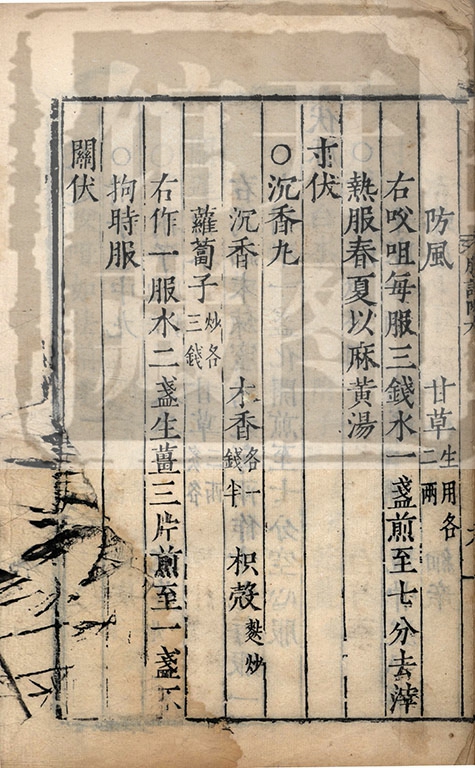 防風 甘草生用各二兩
右㕮咀每服三錢水一盞煎至七分去滓
熱服春夏以麻黃湯
寸伏
○沉香丸
沉香 木香各一錢半 枳殼麩炒
蘿蔔子炒各三錢
右作一服水二盞生薑三片煎至一盞不
○拘時服
關伏